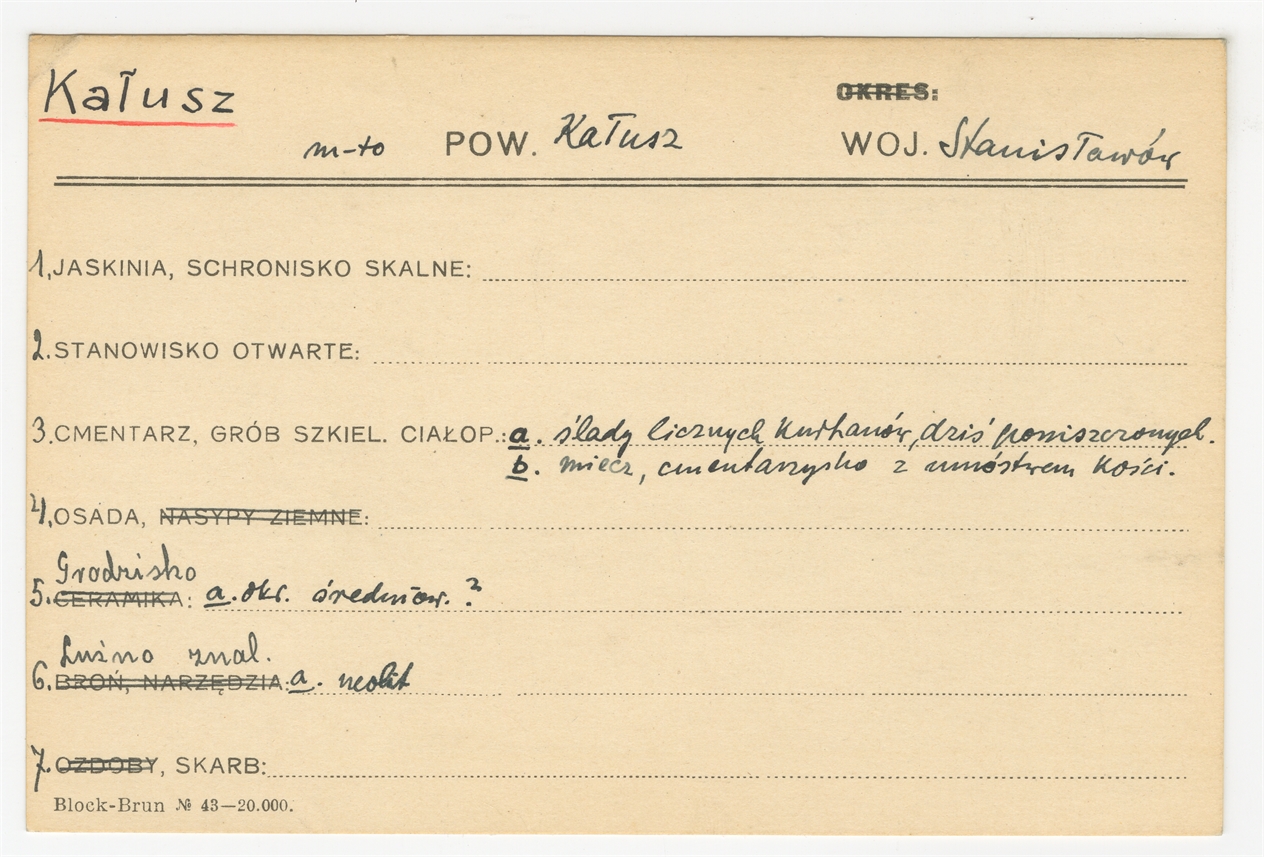 Kałusz
OKRES:
m-to POW. Kałusz WOJ. Stanisławów
1, JASKINIA, SCHRONISKO SKALNE:
2. STANOWISKO OTWARTE:
3. CMENTARZ, GRÓB SZKIEL. CIAŁOP.: a. ślady licznych kurhanów, dziś poniszczonych.
b. miecz, cmentarzysko z mnóstwem kości.
4, OSADA, NASYPY ZIEMNE:
Grodzisko
5. CERAMIKA: a. okr. średniow. ?
Luźno znal.
6. BROŃ, NARZĘDZIA: a. neolit
7. OZDOBY, SKARB:
Block-Brun № 43—20.000.